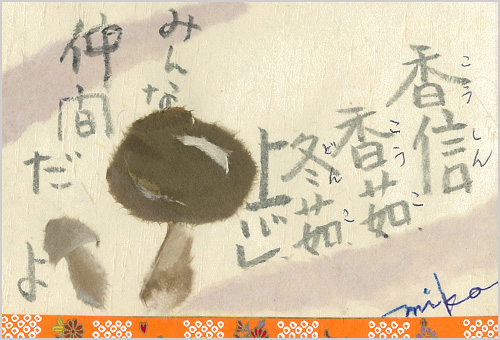 香信
こうしん
香茹
こうこ
冬茹
どんこ
上
みんな
仲間だよ
miko